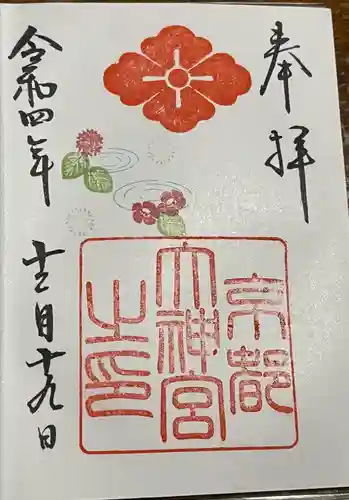 奉拝
京都
大神宮
之印
令和四年
十二月十九日